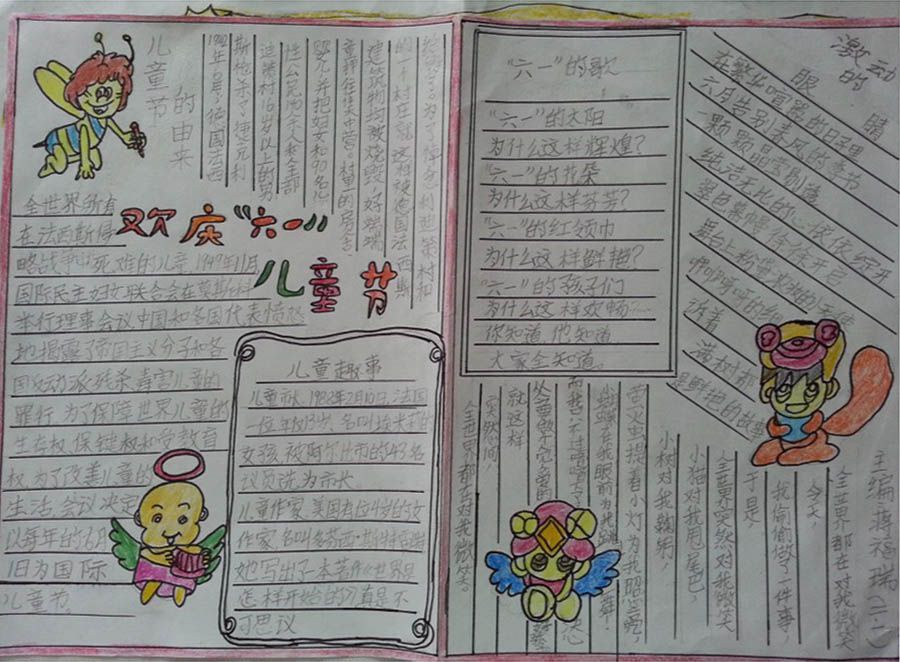 儿童节
的由来
1942年6月,德国法西
斯枪杀了捷克利
迪策村16岁以上的男
性公民140余人和全部
婴儿,并把妇女和90名儿
童押往集中营。村里的房舍、
建筑物均被烧毁,好端端
的一个村庄就这样被德国法西斯
给毁了。为了悼念利迪策村和
全世界所有
在法西斯侵
略战争中死难的儿童,1949年11月
国际民主妇女联合会在莫斯科
举行理事会议中国和各国代表愤怒
地揭露了帝国主义分子和各
国反动派残杀、毒害儿童的
罪行,为了保障世界儿童的
生存权、保健权和受教育
权,为了改善儿童的
生活,会议决定
以每年的6月1
日为国际
儿童节。
欢庆“六一”
儿童节
儿童趣事
儿童市长,1982年2月10日,法国
一位年仅13岁、名叫
女孩,被阿尔比市的43名
议员选为市长。
儿童作家,美国有位4岁的女
作家,名叫多萝西·斯特
她写出了一本著作《世界是
怎样开始的》真是不
可思议
“六一”的歌
“六一”的太阳
为什么这样辉煌?
“六一”的花朵
为什么这样芬芳?
“六一”的红领巾
为什么这样鲜艳?
“六一”的孩子们
为什么这样欢畅……
你知道,他知道
大家全知道。
激动
的
眼
睛
在繁华喧嚣的日子里
六月告别春风的季节
一颗颗晶莹剔透
纯洁无比的心依依绽开
翠色幕帷徐徐开
舞台上粉
诉着
满树都
是鲜艳的故事
主编 蒋福瑞(二.2)
全世界都在对我微笑
今天,
我偷偷做了一件事,
于是,
全世界突然对我微笑
小猫对我甩尾巴,
小树对我鞠躬,
萤火虫提着小灯为我照亮,
蝴蝶在我眼前为我跳舞.
就这样
突然间,
全世界都在对我微笑。